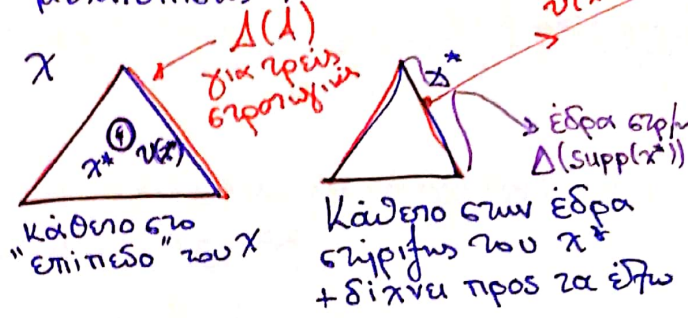 χ
Δ(Δ)
για τρείς
στρατηγικές
x*
v(x*)
κάθετο στο
"επίπεδο" του χ
x*
έδρα στήρ
Δ(supp(x*))
Κάθετο στην έδρα
στήριξης του x*
+ δίχνει προς τα έξω